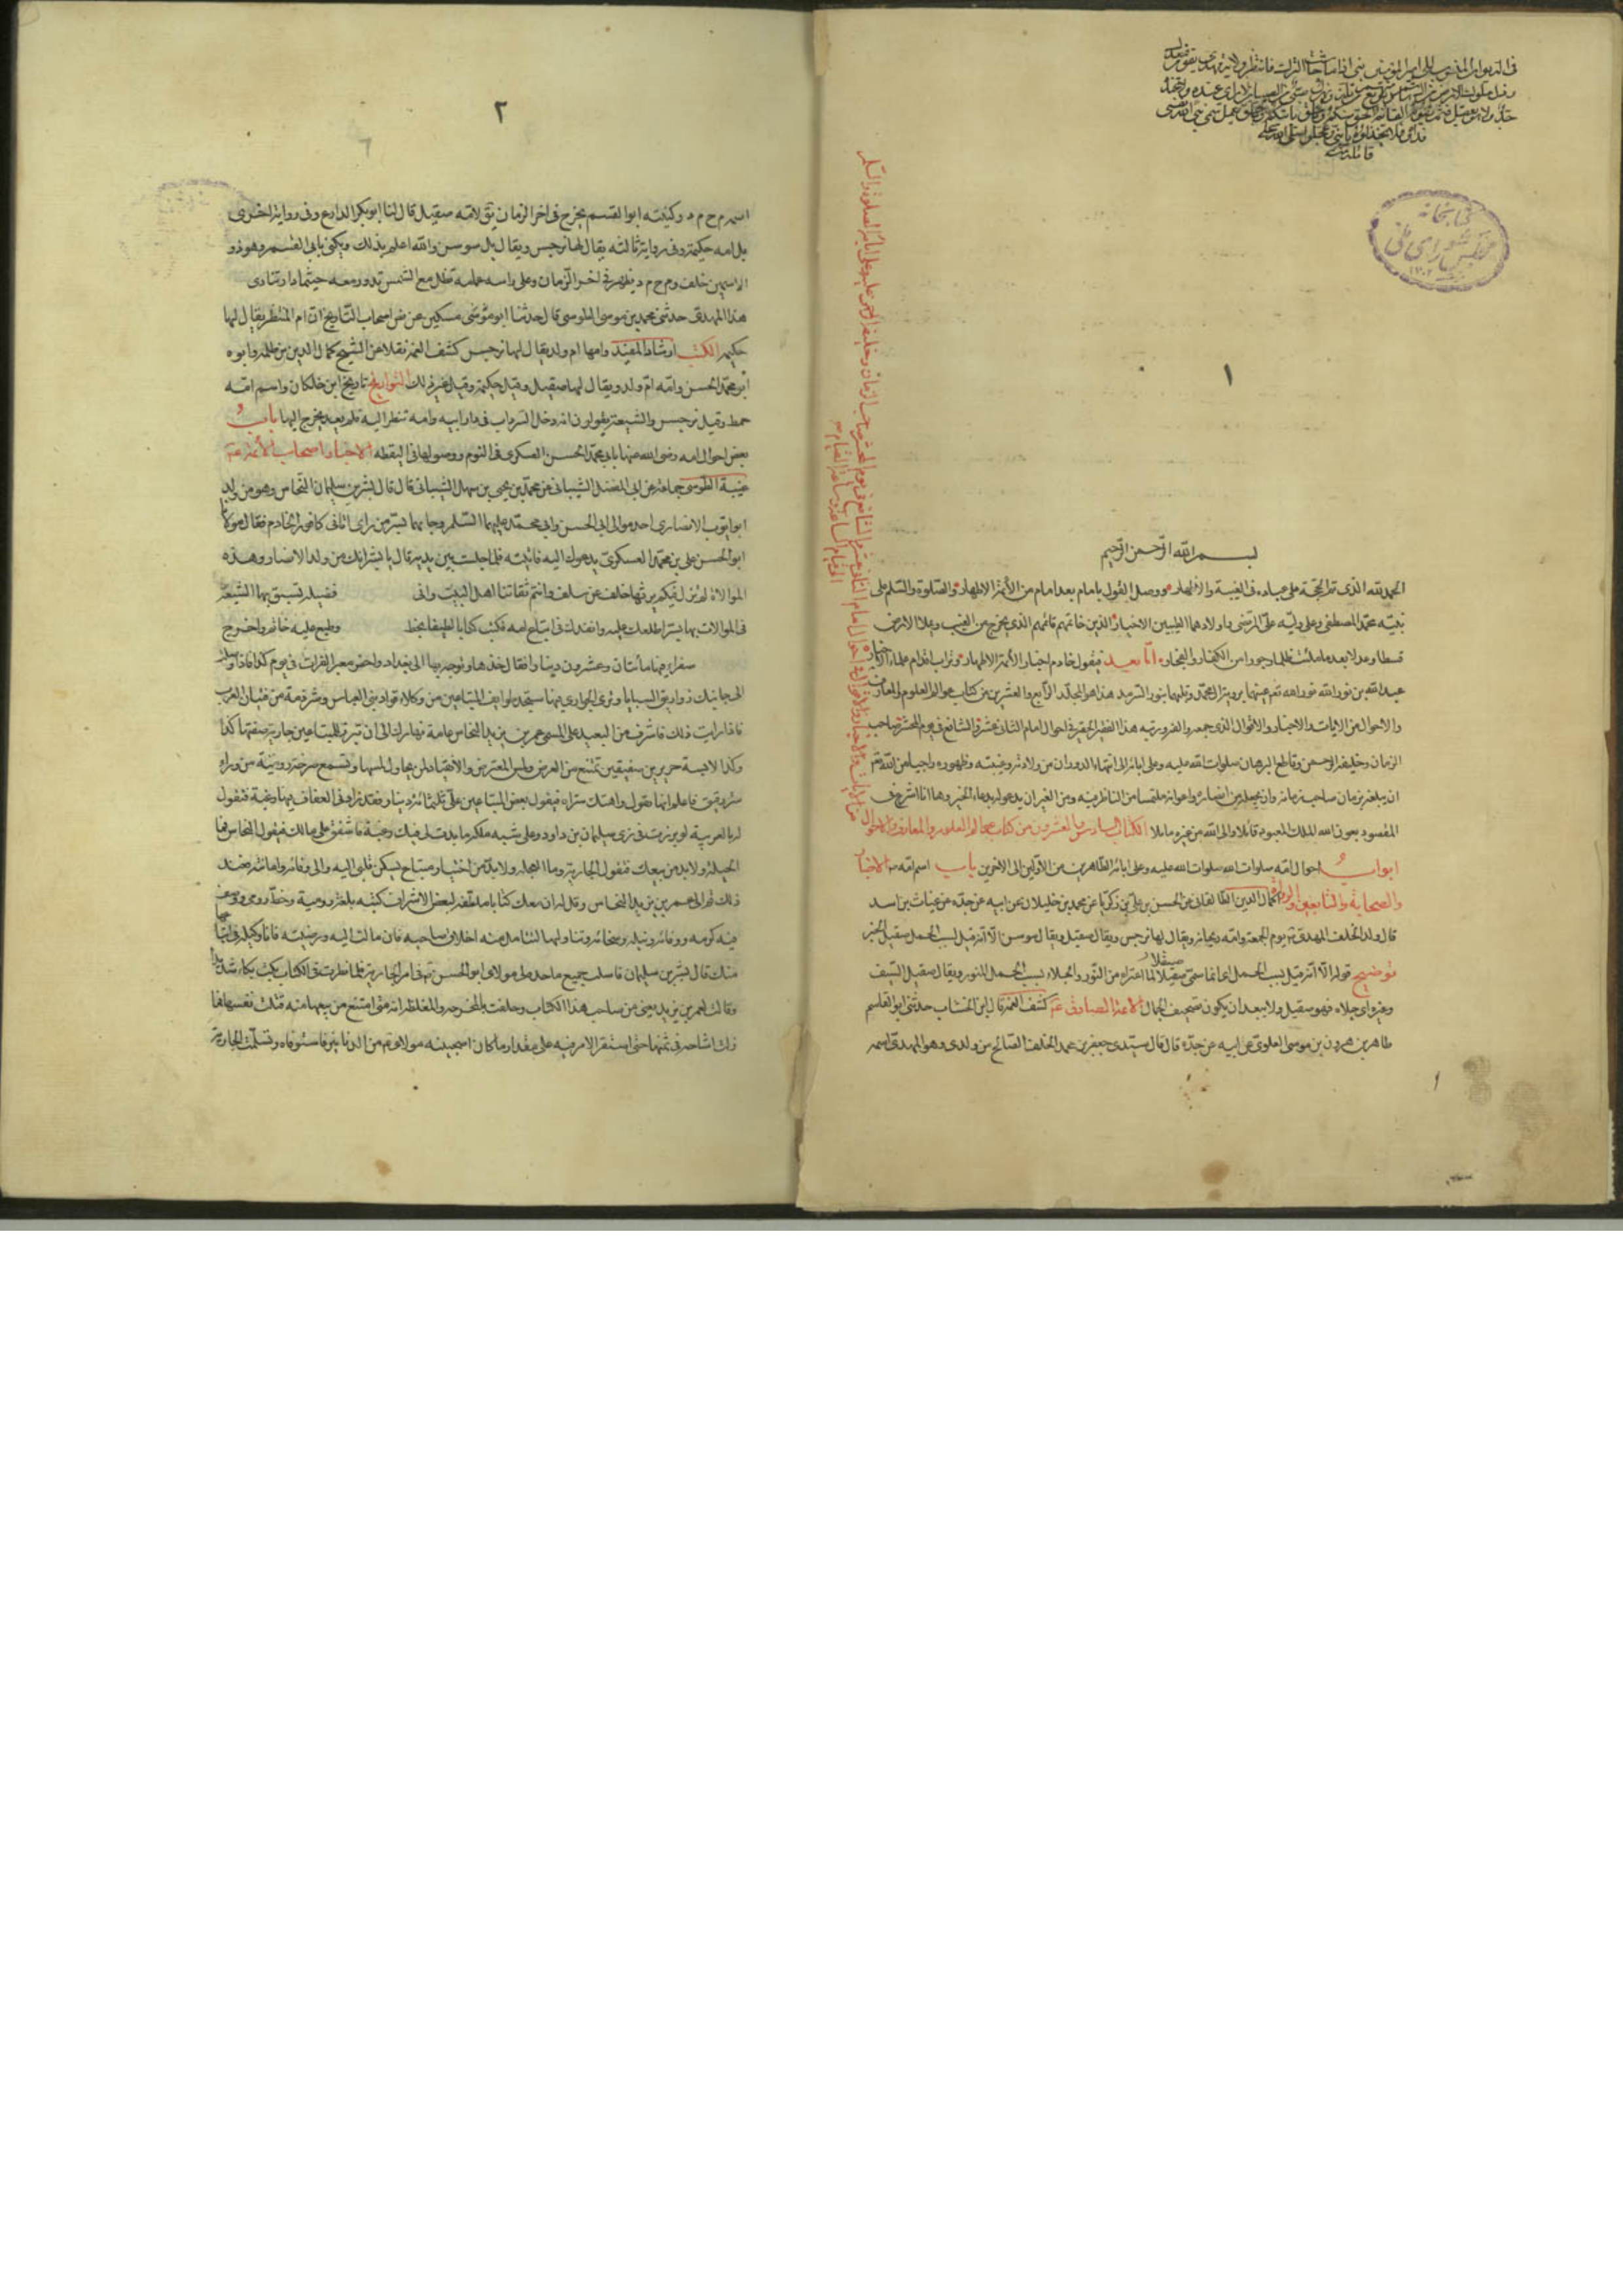 في الديوان المنسوب الى امير المؤمنين بني اذا ما جاشت الترك فانتظر ولاية مهدي يقوم فيعدل
وذل ملوك الارض من ال هاشم وبويع منهم من يلذ ويهزل صبي من الصبيان لا راي عنده ولا عنده
جد ولا هو يعقل فثم يقوم القائم الحق منكم وبالحق ياتيكم وبالحق يعمل سمي نبي الله نفسي
فداؤه فلا تخذلوه يا بني وعجلوا
كتابخانه
مجلس شورای ملی
١
بسم الله الرحمن الرحيم
الحمد لله الذي تم الحجة على عباده في الغيبة والاظهار ووصل القول بامام بعد امام من الأئمة الاطهار والصلوة والسلم على
نبيه محمد المصطفى وعلى وليه علي المرتضى واولادهما الطيبين الاخيار الذين خاتمهم قائمهم الذي يخرج من الغيب ويملا الارض
قسطا وعدلا بعد ما ملئت ظلما وجورا من الكفار والفجار اما بعد فيقول خادم اخبار الأئمة الاطهار وتراب اقدام علماء الاخيار
عبد الله بن نور الله نور الله هذا هو المجلد الرابع والعشرين من كتاب عوالم العلوم والمعارف
والاحوال من الايات والاخبار والاقوال الذي جمعه والفه ورتبه هذا الفقير الحقير في احوال امام الثاني عشر والشافع في يوم المحشر صاحب
الزمان وخليفة الرحمن وقاطع البرهان صلوات الله عليه وعلى ابائه الى انتهاء الدوران من ولادته وغيبته وظهوره راجيا من الله
ان يبلغه زمان صاحب زمانه وان يجعله من انصاره واعوانه ملتمسا من الناظر فيه ومن الغير ان يدعو له بدعاء الخير وها انا اشرع في
المقصود بعون الله الملك المعبود قائلا والى الله من غيره مائلا الكتاب السادس والعشرون من كتاب عوالم العلوم والمعارف والاحوال
ابواب احوال امه صلوات الله عليه وعلى ابائه الطاهرين من الاولين الى الاخرين باب اسم امه الاخبار
والصحابة والتابعين والرواة اكمال الدين الطالقاني عن الحسن بن علي بن زكريا عن محمد بن خليلان عن ابيه عن جده عن غياث بن اسد
قال ولد الخلف المهدي يوم الجمعة وامه ريحانة ويقال لها نرجس ويقال صقيل ويقال سوسن الا انه قيل لسبب الحمل صقيل الخبر
توضيح قوله الا انه قيل لسبب الحمل اي انما سمي صقيلا لما اعتراه من النور والجلاء بسبب الحمل المنور ويقال صقل السيف
وغيره اي جلاه فهو صقيل ولا يبعد ان يكون تصحيف الجمال الائمة الصادق كشف الغمة قال ابن الخشاب حدثني ابو القاسم
طاهر بن هرون بن موسى العلوي عن ابيه عن جده قال قال سيدي جعفر بن محمد الخلف الصالح من ولدي وهو المهدي اسمه
٢
اسمه م ح م د وكنيته ابو القسم يخرج في اخر الزمان يقال لامه صقيل قال لنا ابو بكر الدارع وفي رواية اخرى
بل امه حكيمة وفي رواية ثالثة يقال لها نرجس ويقال بل سوسن والله اعلم بذلك ويكنى بابي القسم وهو ذو
الاسمين خلف وم ح م د يظهر في اخر الزمان وعلى راسه غمامة تظله مع الشمس تدور معه حيثما دار تنادي
هذا المهدي حدثني محمد بن موسى الطوسي قال حدثنا ابو موسى مسكين عن بعض اصحاب التاريخ ان ام المنتظر يقال لها
حكيمة الكتب ارشاد المفيد وامها ام ولد يقال لها نرجس كشف الغمة نقلا عن الشيخ كمال الدين بن طلحة وابوه
أبو محمد الحسن وامه ام ولد ويقال لها صقيل وقيل حكيمة وقيل غير ذلك التواريخ تاريخ ابن خلكان واسم امه
خمط وقيل نرجس والشيعة يقولون انه دخل السرداب في دار ابيه وامه تنظر اليه فلم يعد يخرج اليها باب
بعض احوال امه رضي الله عنها بابي محمد الحسن العسكري في النوم ووصولها في اليقظة الاخبار اصحاب الأئمة
غيبة الطوسي جماعة عن ابي المفضل الشيباني عن محمد بن يحيى بن سهل الشيباني قال قال بشر بن سليمان النخاس وهو من ولد
ابو ايوب الانصاري احد موالي ابي الحسن وابي محمد عليهما السلم وجارهما بسر من راى اتاني كافور الخادم فقال مولانا
ابو الحسن علي بن محمد العسكري يدعوك اليه فاتيته فلما جلست بين يديه قال يا بشر انك من ولد الانصار وهذه
الموالاة لم تزل فيكم يرثها خلف عن سلف وانتم ثقاتنا اهل البيت واني فضيلة تسبق بها الشيعة
في الموالات بها بسر اطلعك عليه وانفذك في ابتياع امة فكتب كتابا لطيفا بخط وطبع عليه خاتمه واخرج
سفراء فيها مأتان وعشرون دينارا فقال خذها وتوجه بها الى بغداد واحضر معبر الفرات في يوم كذا فاذا وصلت
الى جانبك زواريق السبايا وترى الجواري فيها ستجد طوايف المبتاعين من وكلاء قواد بني العباس وشرذمة من فتيان العرب
فاذا رايت ذلك فاشرف من البعد على المسمى عمر بن يزيد النخاس عامة نهارك الى ان تبرز للمبتاعين جارية صفتها كذا
وكذا لابسة حريرين صفيقين تمتنع من العرض ولمس المعترض والانقياد لمن يحاول لمسها وتسمع صرخة رومية من وراء
ستر رقيق فاعلم انها تقول واهتك ستراه فيقول بعض المبتاعين علي ثلثمائة دينار فقد زادني العفاف فيها رغبة فتقول
له بالعربية لو برزت في زي سليمان بن داود وعلى شبه ملكه ما بدت لي فيك رغبة فاشفق على مالك فيقول النخاس فما
الحيلة ولا بد من بيعك فتقول الجارية وما العجلة ولا بد من اختيار مبتاع يسكن قلبي اليه والى وفائه وامانته فعند
ذلك قم الى عمر بن يزيد النخاس وقل له ان معك كتابا ملطفة لبعض الاشراف كتبه بلغة رومية وخط رومي ووصف
فيه كرمه ووفائه ونبله وسخائه وتناولها لتتامل منه اخلاق صاحبه فان مالت اليه ورضيته فانا وكيله في ابتياعها
منك قال بشر بن سليمان فامتثلت جميع ما حده لي مولاي ابو الحسن في امر الجارية فلما نظرت في الكتاب بكت بكاء شديدا
وقالت لعمر بن يزيد بعني من صاحب هذا الكتاب وحلفت بالمحرجة والمغلظة انه متى امتنع من بيعها منه قتلت نفسها فما
زلت اشاحه في ثمنها حتى استقر الامر فيه على مقدار ما كان اصحبنيه مولاي من الدنانير فاستوفاه وتسلمت الجارية